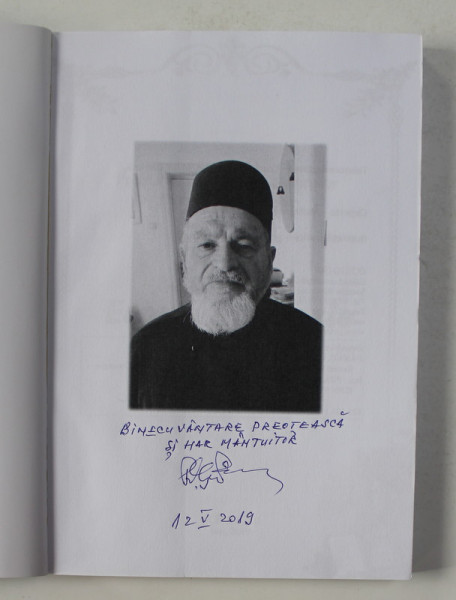 BINECUVÂNTARE PREOTEASCĂ
ȘI HAR MÂNTUITOR
12 V 2019